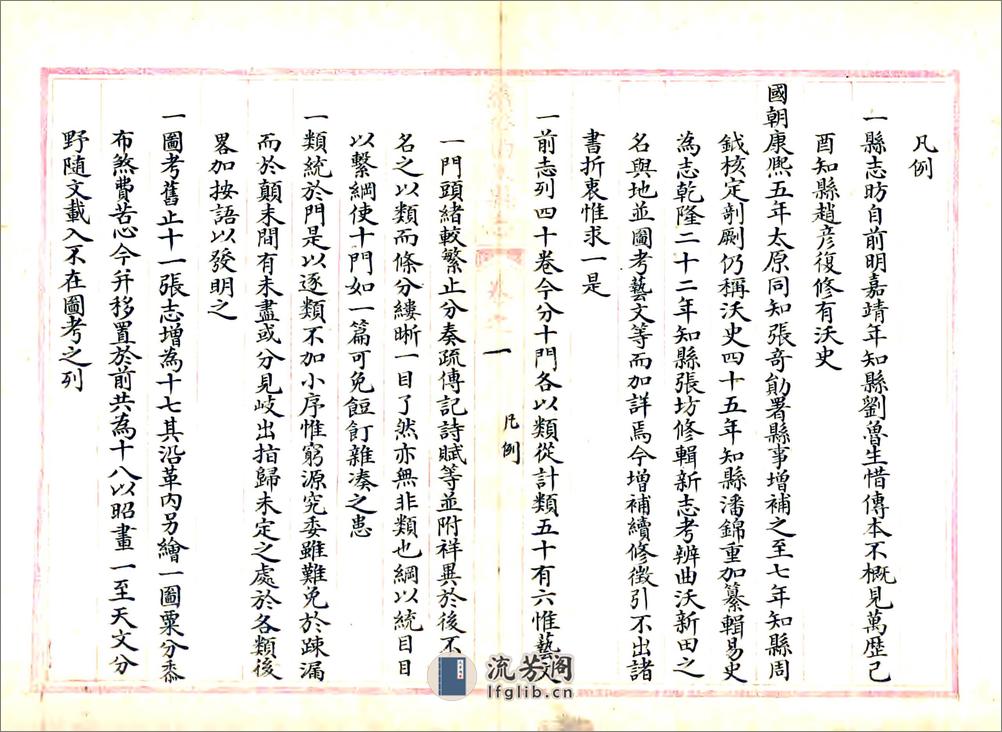 凡例
一縣志昉自前明嘉靖年知縣劉魯生惜傳本不概見萬歷己
酉知縣趙彥復修有沃史
國朝康熙五年太原同知張奇勛署縣事增補之至七年知縣周
鉞核定剞劂仍稱沃史四十五年知縣潘錦重加纂輯易史
為志乾隆二十二年知縣張坊修輯新志考辨曲沃新田之
名與地並圖考藝文等而加詳焉今增補續修徵引不出諸
書折衷惟求一是
一前志列四十卷今分十門各以類從計類五十有六惟藝文
凡例
一
一門頭緒較繁止分奏疏傳記詩賦等並附祥異於後不
名之以類而條分縷晰一目了然亦無非類也綱以統目目
以繫綱使十門如一篇可免餖飣雜湊之患
一類統於門是以逐類不加小序惟窮源究委雖難免於疎漏
而於顛末間有未盡或分見歧出指歸未定之處於各類後
畧加按語以發明之
一圖考舊止十一張志增為十七其沿革內另繪一圖粟分黍
布煞費苦心今并移置於前共為十八以昭畫一至天文分
野隨文載入不在圖考之列
流芳阁
lfglib.cn